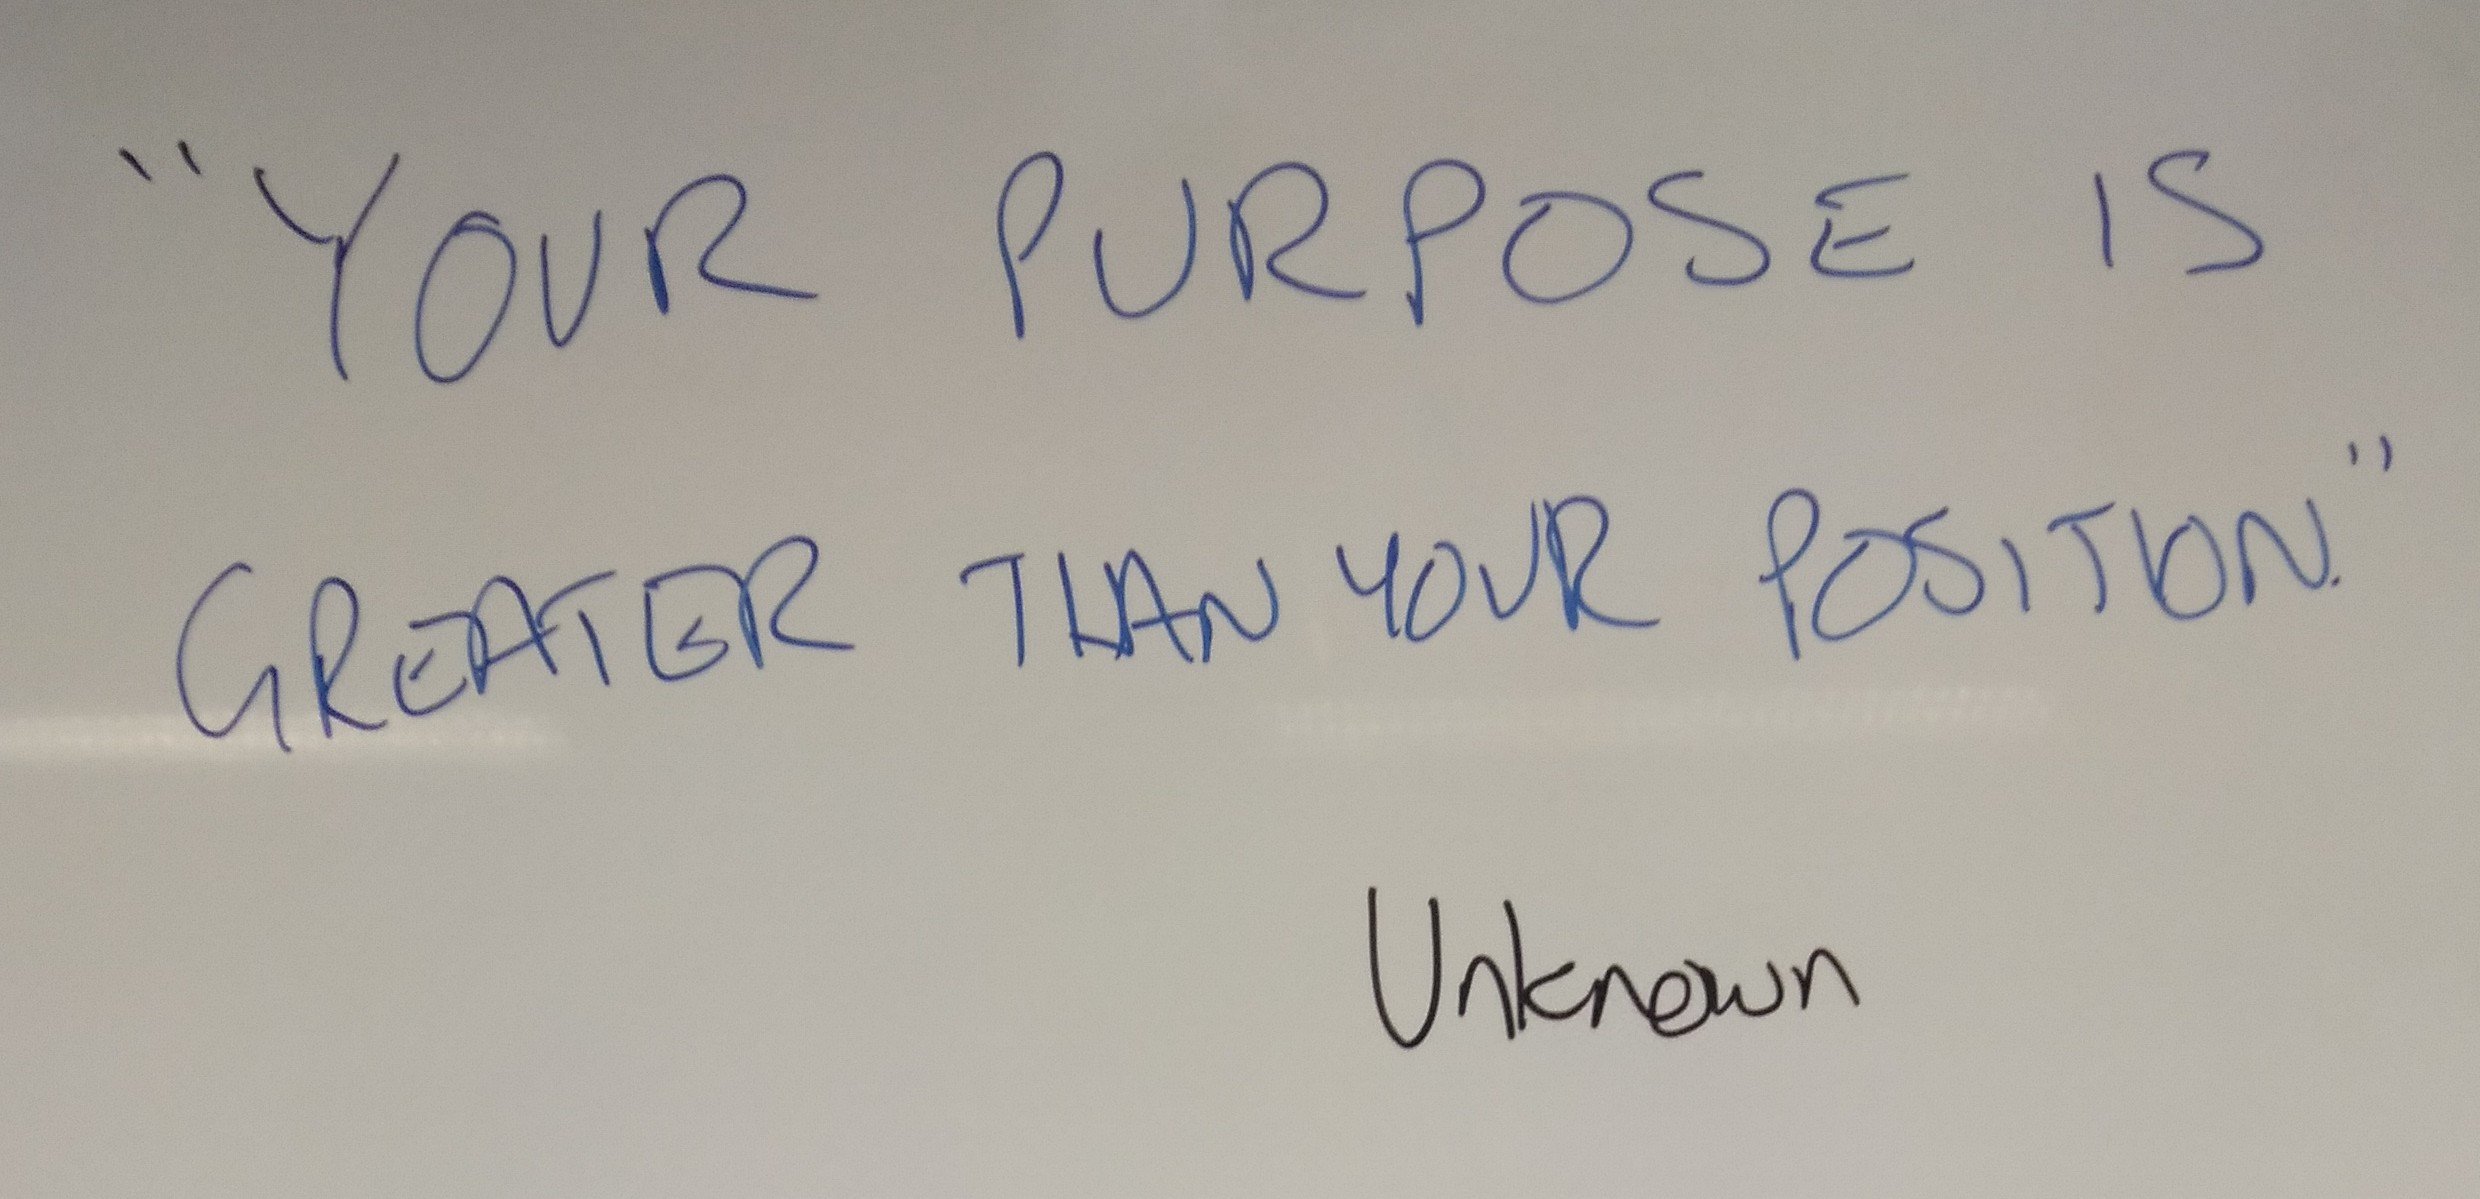 "YOUR PURPOSE IS
GREATER THAN YOUR POSITION."
Unknown